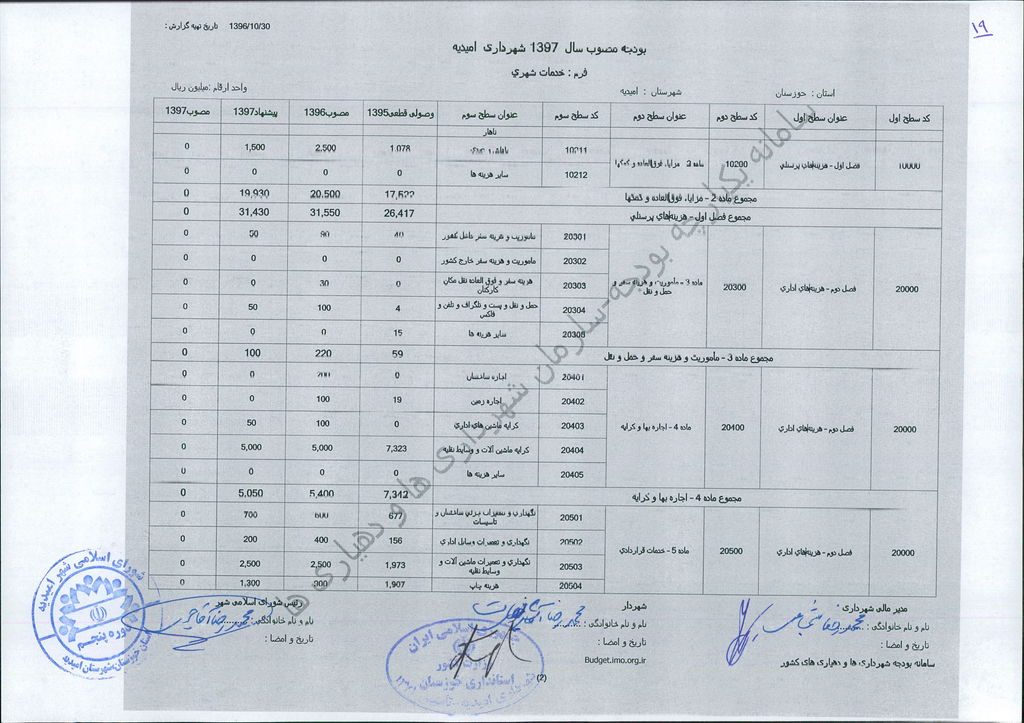 ۱۹
تاریخ تهیه گزارش : 1396/10/30
بودجه مصوب سال 1397 شهرداری امیدیه
فرم : خدمات شهري
استان : خوزستان شهرستان : امیدیه واحد ارقام :میلیون ریال
کد سطح اول عنوان سطح اول کد سطح دوم عنوان سطح دوم کد سطح سوم عنوان سطح سوم وصولی قطعی1395 مصوب1396 پیشنهاد1397 مصوب1397
ناهار
10000 فصل اول - هزینه‌هاي پرسنلي 10200 ماده 2 - مزایا، فوق‌العاده و کمکها
10211 1,078 2,500 1,500 0
10212 سایر هزینه ها 0 0 0 0
مجموع ماده 2 - مزایا، فوق‌العاده و کمکها 17,522 20,500 19,930 0
مجموع فصل اول - هزینه‌هاي پرسنلي 26,417 31,550 31,430 0
20000 فصل دوم - هزینه‌هاي اداري 20300 ماده 3 - مأموریت و هزینه سفر و حمل و نقل
20301 ماموریت و هزینه سفر داخل کشور 40 90 50 0
20302 ماموریت و هزینه سفر خارج کشور 0 0 0 0
20303 هزینه سفر و فوق العاده نقل مکان کارکنان 0 30 0 0
20304 حمل و نقل و پست و تلگراف و تلفن و فاکس 4 100 50 0
20305 سایر هزینه ها 15 0 0 0
مجموع ماده 3 - مأموریت و هزینه سفر و حمل و نقل 59 220 100 0
20000 فصل دوم - هزینه‌هاي اداري 20400 ماده 4 - اجاره بها و کرایه
20401 اجاره ساختمان 0 200 0 0
20402 اجاره زمین 19 100 0 0
20403 کرایه ماشین های اداری 0 100 50 0
20404 کرایه ماشین آلات و وسایط نقلیه 7,323 5,000 5,000 0
20405 سایر هزینه ها 0 0 0 0
مجموع ماده 4 - اجاره بها و کرایه 7,342 5,400 5,050 0
20000 فصل دوم - هزینه‌هاي اداري 20500 ماده 5 - خدمات قراردادي
20501 نگهداری و تعمیرات جزئی ساختمان و تاسیسات 677 600 700 0
20502 نگهداری و تعمیرات وسایل اداری 156 400 200 0
20503 نگهداری و تعمیرات ماشین آلات و وسایط نقلیه 1,973 2,500 2,500 0
20504 هزینه چاپ 1,907 300 1,300 0
مدیر مالی شهرداری شهردار رئیس شورای اسلامی شهر
نام و نام خانوادگی : نام و نام خانوادگی : نام و نام خانوادگی :
تاریخ و امضا : تاریخ و امضا : تاریخ و امضا :
سامانه بودجه شهرداری ها و دهیاری های کشور Budget.imo.org.ir
(2)
سامانه یکپارچه بودجه-سازمان شهرداری ها و دهیاری ها
شورای اسلامی شهر امیدیه
دوره پنجم
خوزستان.شهرستان امیدیه
استانداری خوزستان